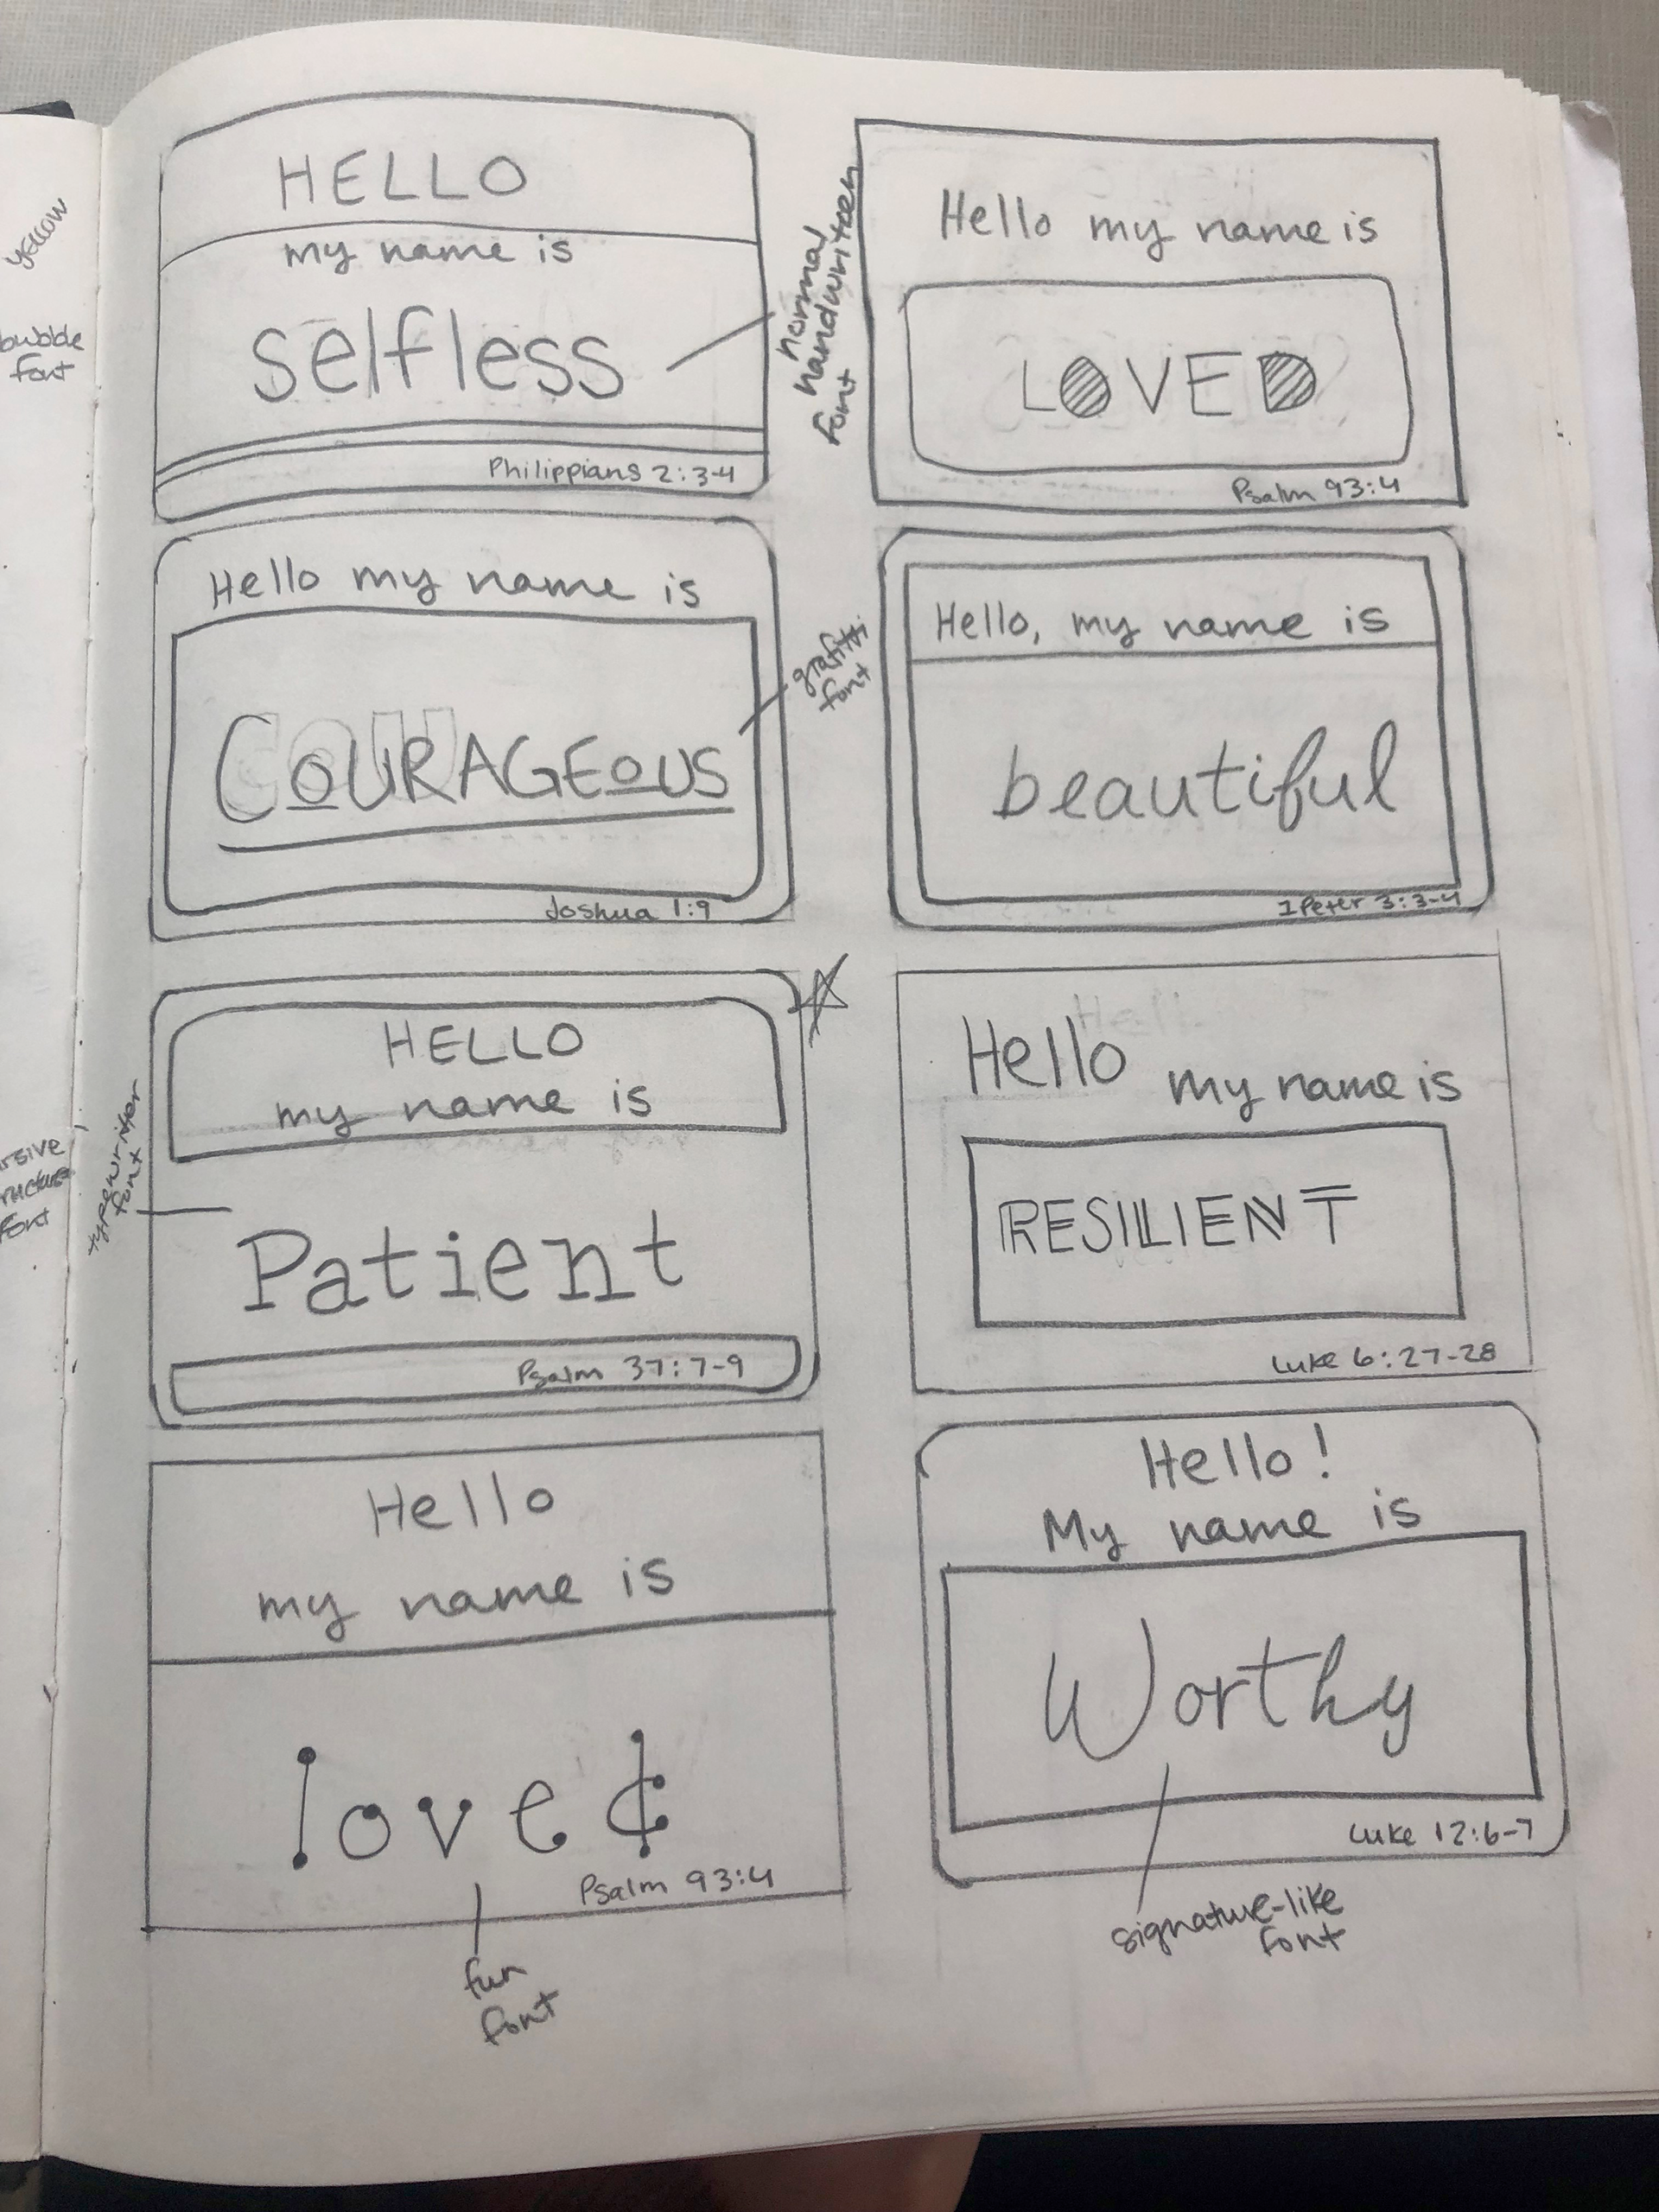 yellow
bubble
font
HELLO
my name is
selfless
Philippians 2:3-4
normal
handwritten
font
Hello my name is
LOVED
Psalm 93:4
Hello my name is
COURAGEOUS
Joshua 1:9
grafitti
font
Hello, my name is
beautiful
1 Peter 3:3-4
HELLO
my name is
Patient
Psalm 37:7-9
typewriter
font
font
Hello my name is
RESILIENT
Luke 6:27-28
Hello
my name is
loved
Psalm 93:4
fun
font
Hello!
My name is
Worthy
Luke 12:6-7
signature-like
font